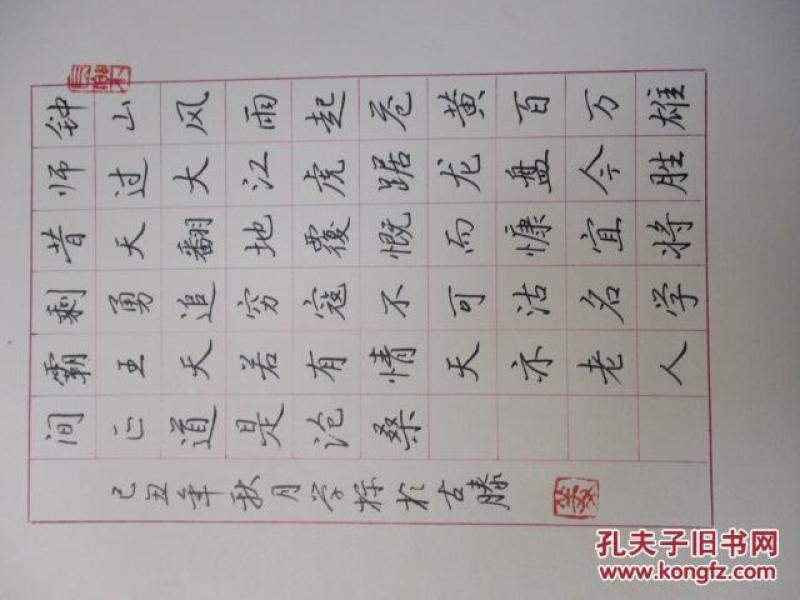 钟山风雨起苍黄百万雄
师过大江虎踞龙盘今胜
昔天翻地覆慨而慷宜将
剩勇追穷寇不可沽名学
霸王天若有情天亦老人
间正道是沧桑
己丑年秋月学标於古滕
孔夫子旧书网
www.kongfz.com